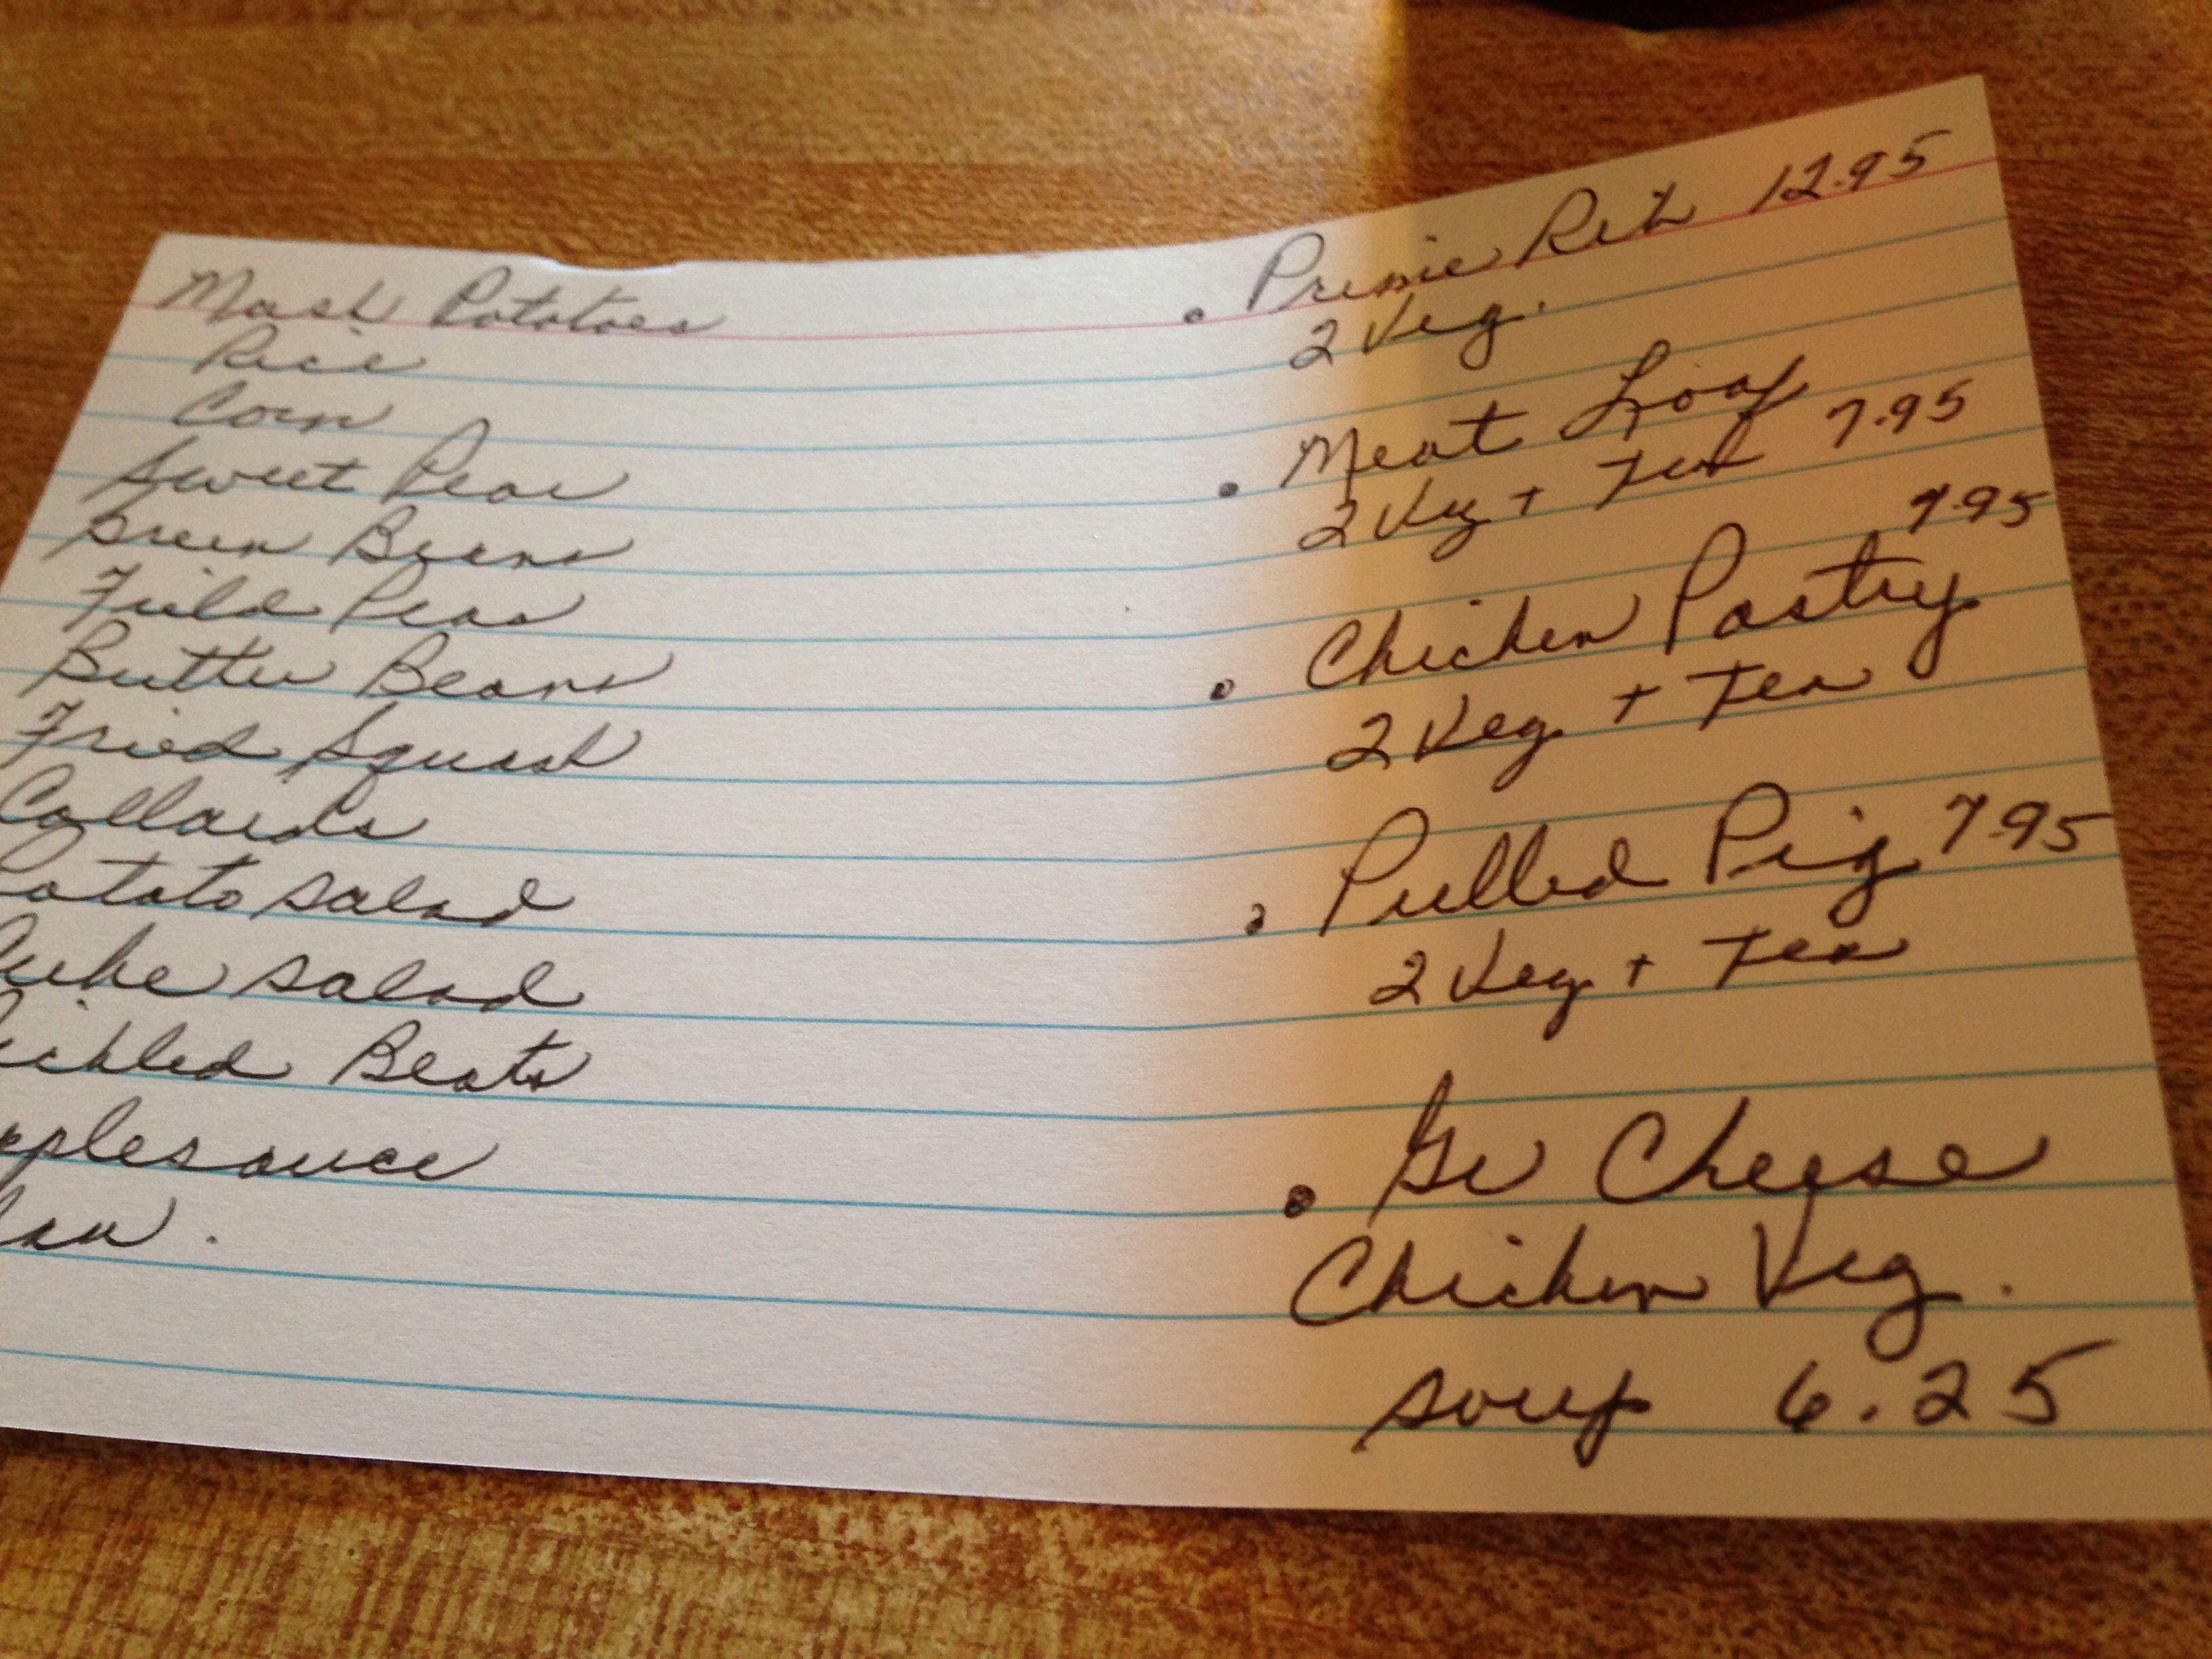 Mash Potatoes
Rice
Corn
Sweet Peas
Green Beans
Field Peas
Butter Beans
Fried Squash
Collards
Potato salad
Cuke salad
ickled Beats
pplesauce
law.
• Prime Rib 12.95
2 Veg.
• Meat Loaf
2 Veg + Tea 7.95
7.95
• Chicken Pastry
2 Veg + Tea
• Pulled Pig 7.95
2 Veg + Tea
• Gr Cheese
Chicken Veg.
soup 6.25